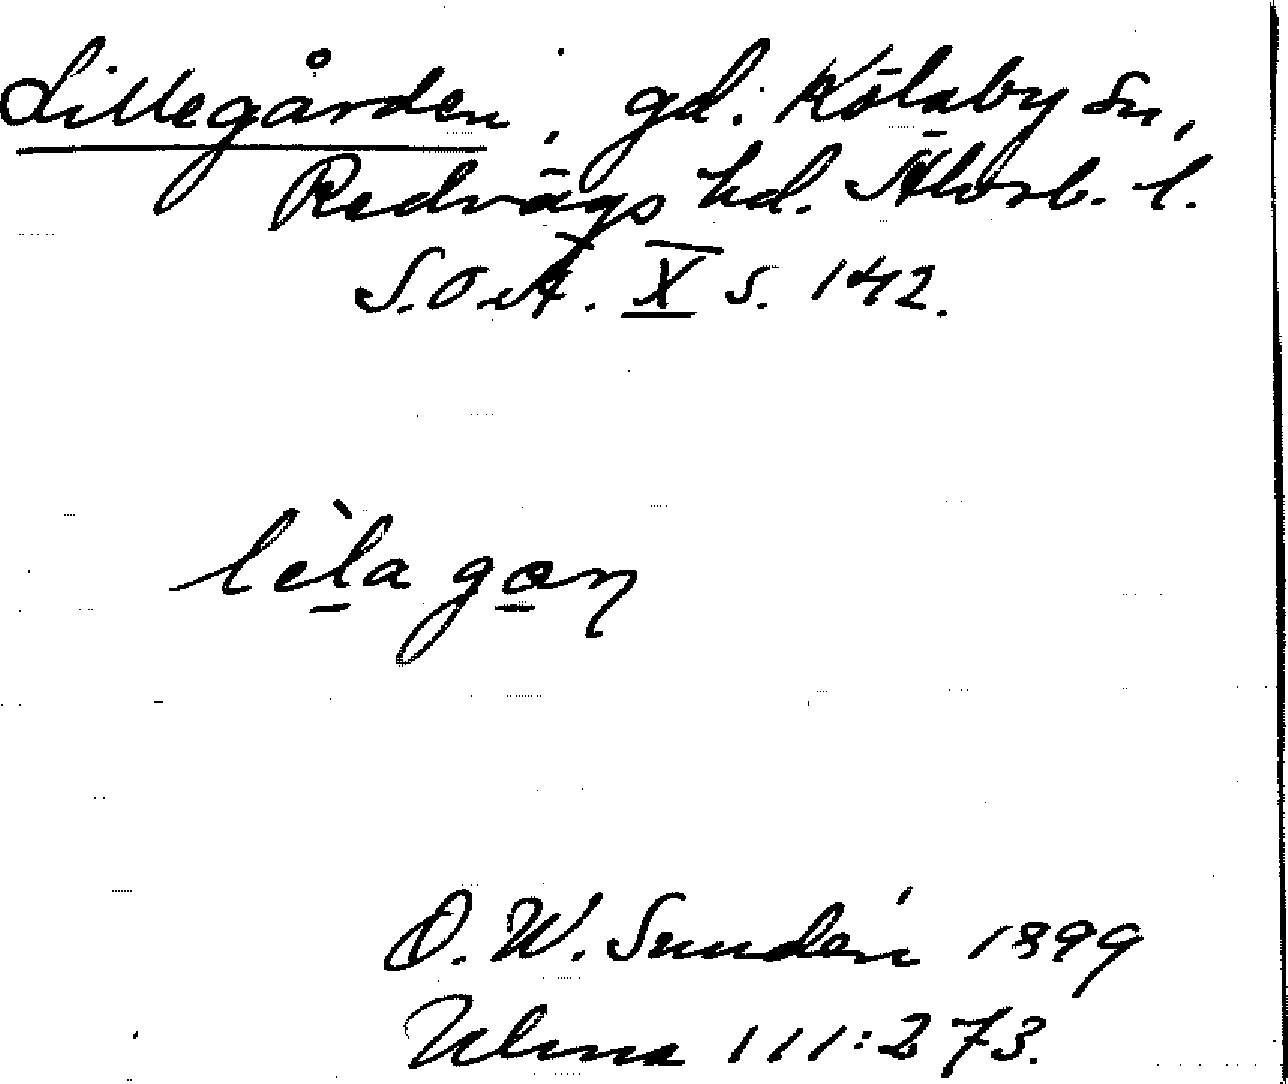 Lillegården, gd. Kölaby sn,
Redvägs hd. Älvsb. l.
S.O.Ä. X s. 142.
lèla gaɳ
D. W. Sundén 1899
Ulma 111:273.